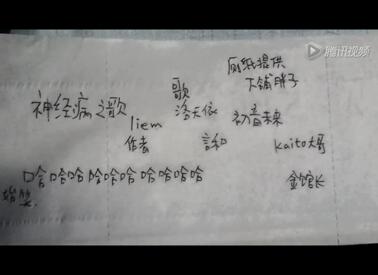 腾讯视频
厕纸提供
大铺胖子
歌
神经病之歌
洛天依
初音未来
liem
作者
言和
kaito大哥
哈哈哈哈哈哈哈哈哈哈
金馆长